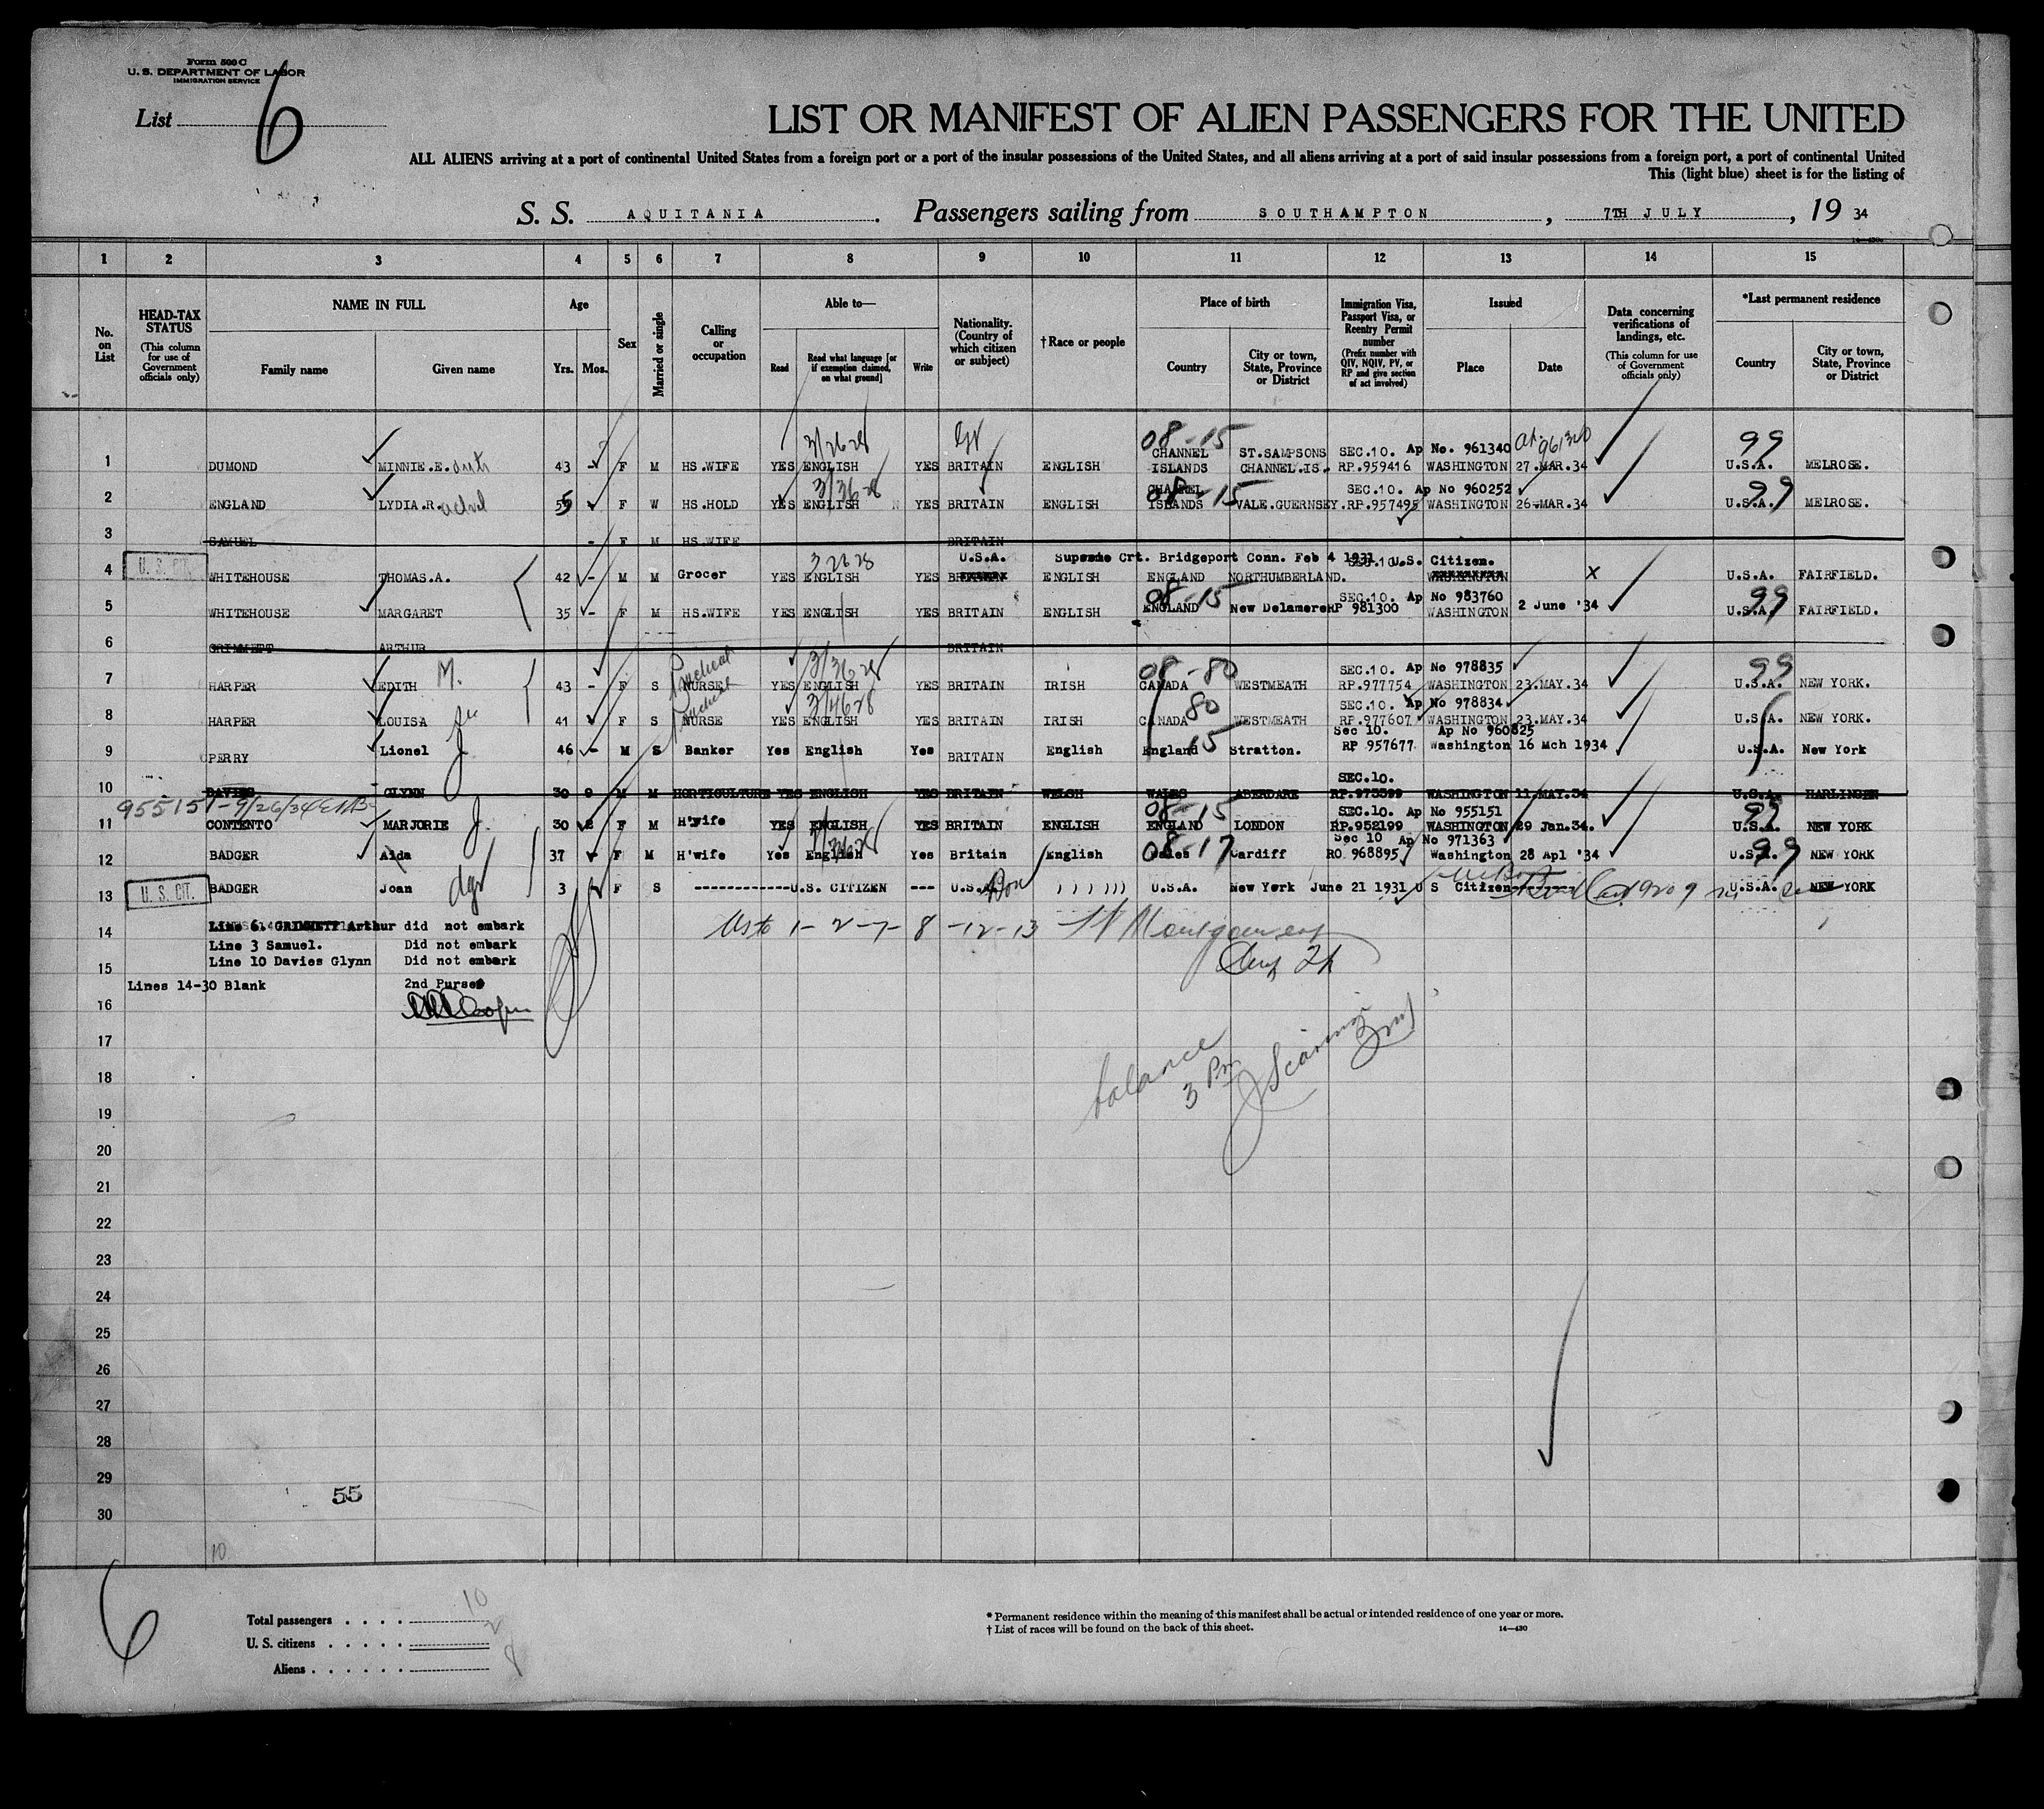 Form 500 C
U. S. DEPARTMENT OF LABOR
IMMIGRATION SERVICE
List 6
LIST OR MANIFEST OF ALIEN PASSENGERS FOR THE UNITED
ALL ALIENS arriving at a port of continental United States from a foreign port or a port of the insular possessions of the United States, and all aliens arriving at a port of said insular possessions from a foreign port, a port of continental United
This (light blue) sheet is for the listing of
S. S. AQUITANIA. Passengers sailing from SOUTHAMPTON, 7TH JULY, 19 34
1 2 3 4 5 6 7 8 9 10 11 12 13 14 15
No. on List
HEAD-TAX STATUS (This column for use of Government officials only)
NAME IN FULL
Family name
Given name
Age
Yrs.
Mos.
Sex
Married or single
Calling or occupation
Able to—
Read
Read what language [or if exemption claimed, on what ground]
Write
Nationality. (Country of which citizen or subject)
†Race or people
Place of birth
Country
City or town, State, Province or District
Immigration Visa, Passport Visa, or Reentry Permit number (Prefix number with QIV, NQIV, PV, or RP and give section of act involved)
Issued
Place
Date
Data concerning verifications of landings, etc. (This column for use of Government officials only)
*Last permanent residence
Country
City or town, State, Province or District
3/26 28 08-15 SEC.10. Ap No. 961340 961340 99
1 DUMOND MINNIE.E. 43 - F M HS.WIFE YES ENGLISH YES BRITAIN ENGLISH CHANNEL ISLANDS ST.SAMPSONS CHANNEL.IS. RP.959416 WASHINGTON 27.MAR.34 U.S.A. MELROSE.
3/36 28 08-15 SEC.10. Ap No 960252 99
2 ENGLAND LYDIA.R. 55 F W HS.HOLD YES ENGLISH YES BRITAIN ENGLISH CHANNEL ISLANDS VALE.GUERNSEY. RP.957495 WASHINGTON 26-MAR.34 U.S.A. MELROSE.
3 SAMUEL - F M HS.WIFE BRITAIN
U.S. CIT. 3 26 28 U.S.A. Supreme Crt. Bridgeport Conn. Feb 4 1931. U.S. Citizen.
4 WHITEHOUSE THOMAS.A. 42 - M M Grocer YES ENGLISH BRITAIN ENGLISH ENGLAND NORTHUMBERLAND. WASHINGTON X U.S.A. FAIRFIELD.
08-15 SEC.10. Ap No 983760 99
5 WHITEHOUSE MARGARET 35 - F M HS.WIFE YES ENGLISH YES BRITAIN ENGLISH ENGLAND New Delamere RP 981300 WASHINGTON 2 June '34 U.S.A. FAIRFIELD.
6 GRIMMETT ARTHUR BRITAIN
3/36 28 08-80 SEC.10. Ap No 978835 99
7 HARPER EDITH M. 43 - F S NURSE YES ENGLISH YES BRITAIN IRISH CANADA WESTMEATH RP.977754 WASHINGTON 23.MAY.34 U.S.A. NEW YORK.
3/46 28 80 SEC.10. Ap No 978834
8 HARPER LOUISA 41 F S NURSE YES ENGLISH YES BRITAIN IRISH CANADA WESTMEATH RP.977607 WASHINGTON 23.MAY.34 U.S.A. NEW YORK.
15 Sec 10. Ap No 960825
9 PERRY Lionel J 46 - M S Banker Yes English Yes BRITAIN English England Stratton. RP 957677 Washington 16 Mch 1934 U.S.A. New York
SEC.10.
10 DAVIES GLYNN 30 9 M M HORTICULTURE YES ENGLISH YES BRITAIN WELSH WALES ABERDARE RP.973399 WASHINGTON 11.MAY.34 U.S.A. HARLINGEN
955151-9/26/34 08-15 SEC.10. Ap No 955151 99
11 CONTENTO MARJORIE J. 30 F M H'wife YES ENGLISH YES BRITAIN ENGLISH ENGLAND LONDON RP.952199 WASHINGTON 29 Jan.34. U.S.A. NEW YORK
08-17 Sec 10 Ap No 971363 99
12 BADGER Aida 37 - F M H'wife Yes English Yes Britain English Wales Cardiff RO 968895 Washington 28 Apl '34 U.S.A. NEW YORK
U.S. CIT.
13 BADGER Joan dgr 3 F S ------------ U.S. CITIZEN --- U.S.A. U.S.A. New York June 21 1931 U S Citizen U.S.A. NEW YORK
14 Line 6. GRIMMETT Arthur did not embark
Line 3 Samuel. Did not embark
15 Line 10 Davies Glynn Did not embark
Lines 14-30 Blank 2nd Purser
1-2-7-8-12-13
16
17
balance
3 Pm
18
19
20
21
22
23
24
25
26
27
28
29
55
30
10
6
Total passengers . . . . 10
U. S. citizens . . . . . 2
Aliens . . . . . . 8
* Permanent residence within the meaning of this manifest shall be actual or intended residence of one year or more.
† List of races will be found on the back of this sheet.
14—430